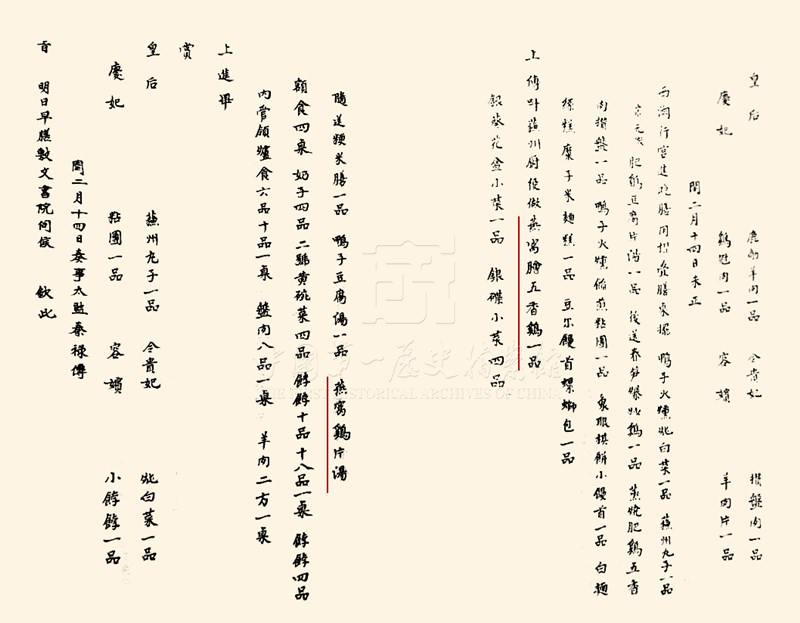 皇后 鹿筋羊肉一品 令貴妃 攢盤肉一品
慶妃 鷄肉一品 容嬪 羊肉片一品
閏二月十四日未正
西湖行宮進晚膳用摺疊膳桌擺 鴨子火燻炖白菜一品 蘇州丸子一品
肥鷄豆腐片湯一品 後送春笋爆炒鷄一品 蒸燒肥鷄五香
肉攢盤一品 鴨子火燻餡煎粘團一品 象眼棋餅小饅首一品 白麵
絲糕糜子米麵糕一品 豆尔饅首螺螄包一品
上傳叫蘇州廚役做燕窩膾五香鷄一品
銀葵花盒小菜一品 銀碟小菜四品
隨送粳米膳一品 鴨子豆腐湯一品 燕窩鷄片湯
額食四桌 奶子四品 二號黃碗菜四品 餑餑十品十八品一桌 餑餑四品
內管領爐食六品十品一桌 盤肉八品一桌 羊肉二方一桌
上進畢
賞
皇后 蘇州丸子一品 令貴妃 炒白菜一品
慶妃 粘團一品 容嬪 小餑餑一品
閏二月十四日奏事太監秦祿傳
旨 明日早膳敷文書院伺候 欽此
中國第一歷史檔案館
THE FIRST HISTORICAL ARCHIVES OF CHINA